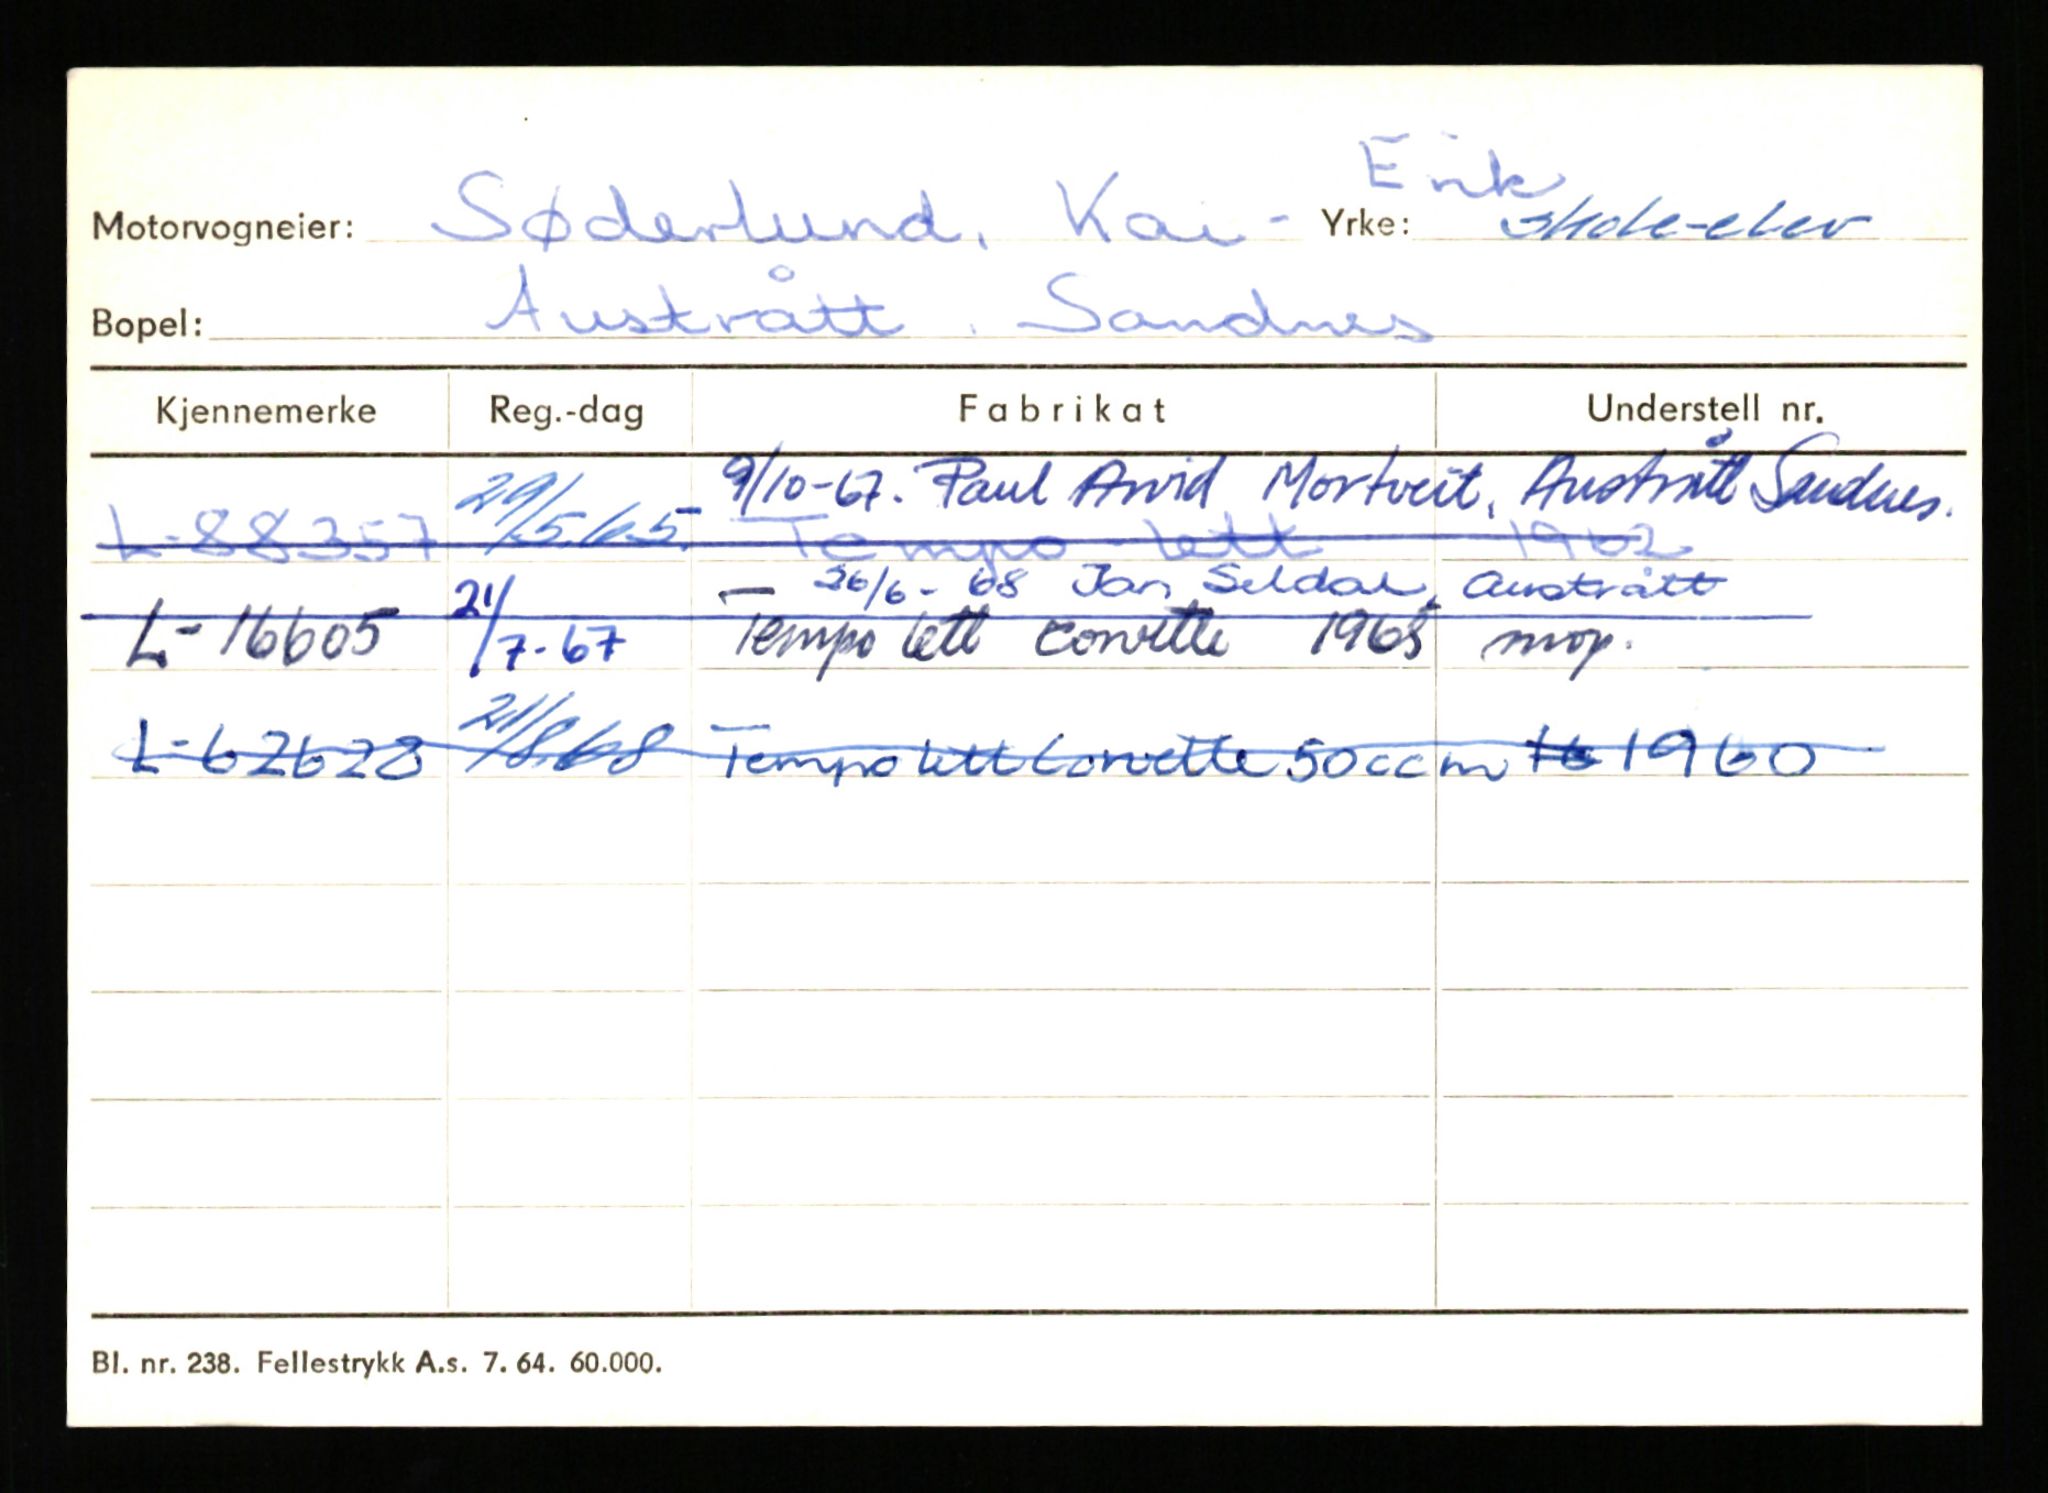 Erik
Motorvogneier: Søderlund, Kai - Yrke: skole-elev
Bopel: Austrått, Sandnes
Kjennemerke Reg.-dag Fabrikat Understell nr.
9/10-67. Paul Arvid Mortveit, Austrått Sandnes.
L-88357 29/5.65. Tempo lett 1962
— 26/6-68 Jan Seldal, Austrått
L-16605 21/7-67 Tempo lett corvette 1965 mop.
L-62628 21/8.68 Tempo lett Corvette 50 ccm 1960
Bl. nr. 238. Fellestrykk A.s. 7. 64. 60.000.